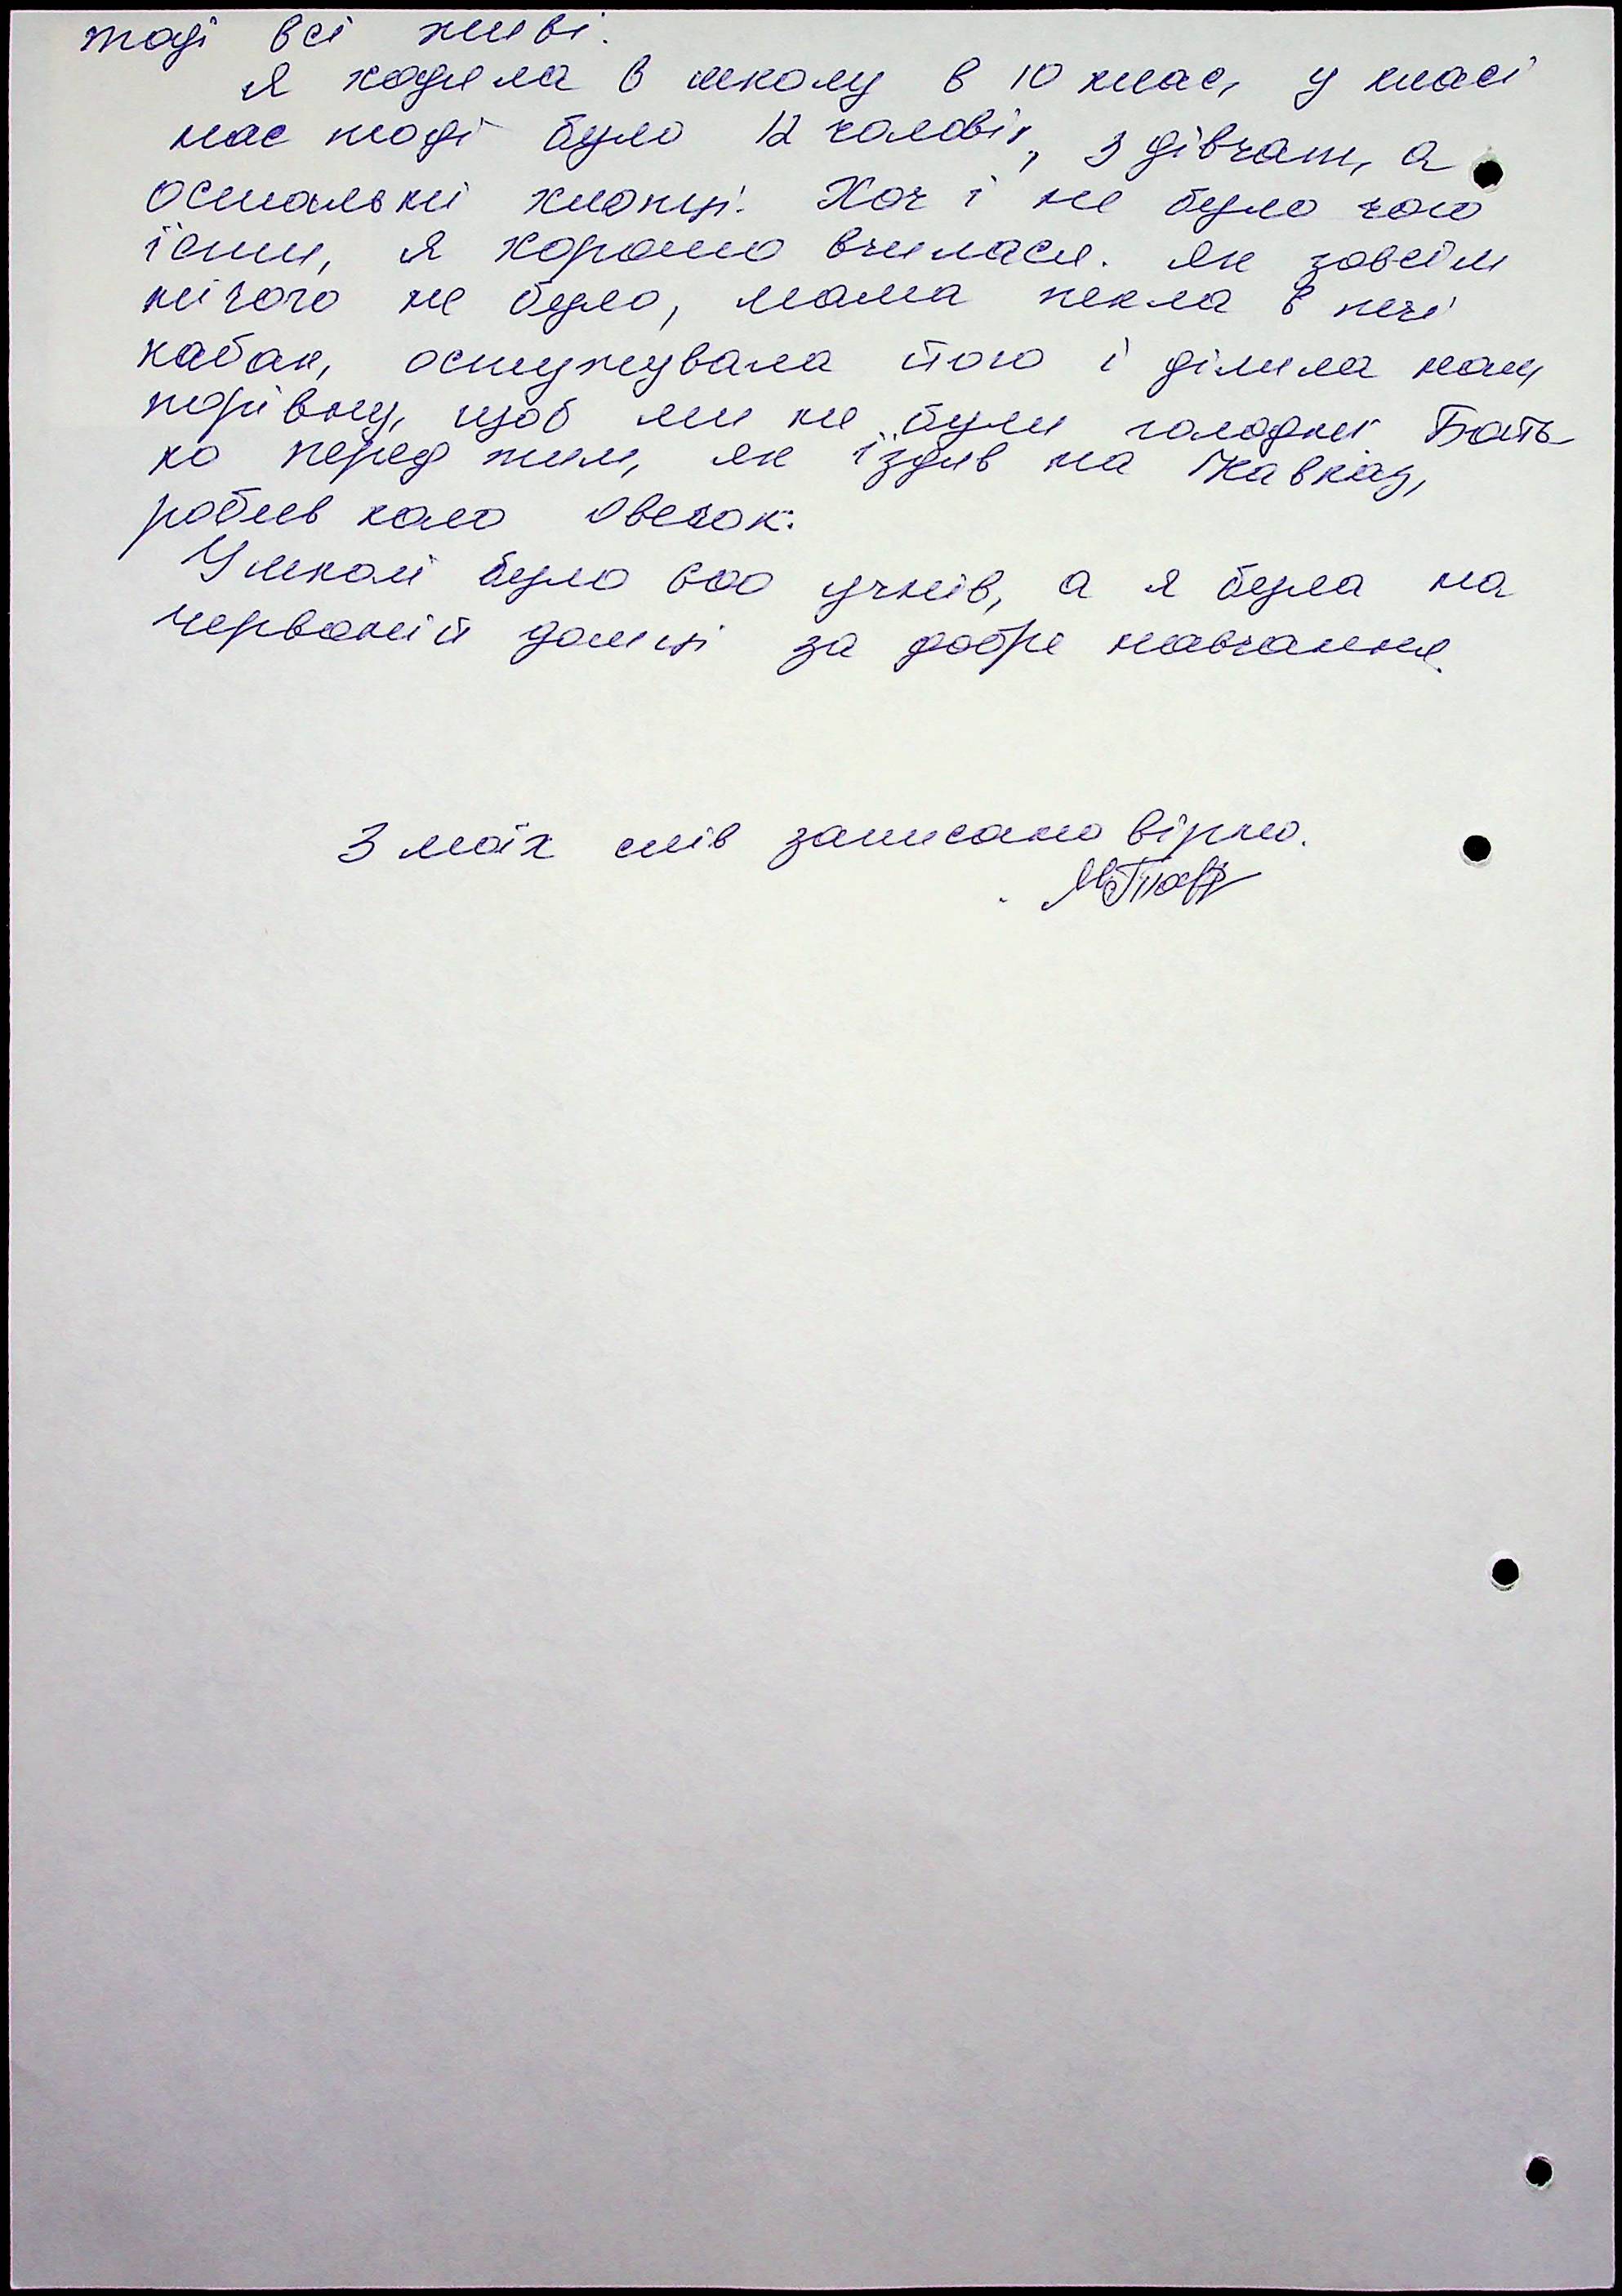 тоді всі живі.
Я ходила в школу в 10 клас, у класі
нас тоді було 12 чоловік, 3 дівчат, а
остальні хлопці. Хоч і не було чого
їсти, я хорошо вчилася. Як зовсім
нічого не було, мама пекла в печі
кабак, остужувала його і ділила нам
порівну, щоб ми не були голодні Бать-
ко перед тим, як їздив на Кавказ,
робив коло овечок.
У школі було 600 учнів, а я була на
червоній дошці за добре навчання.
З моїх слів записано вірно.